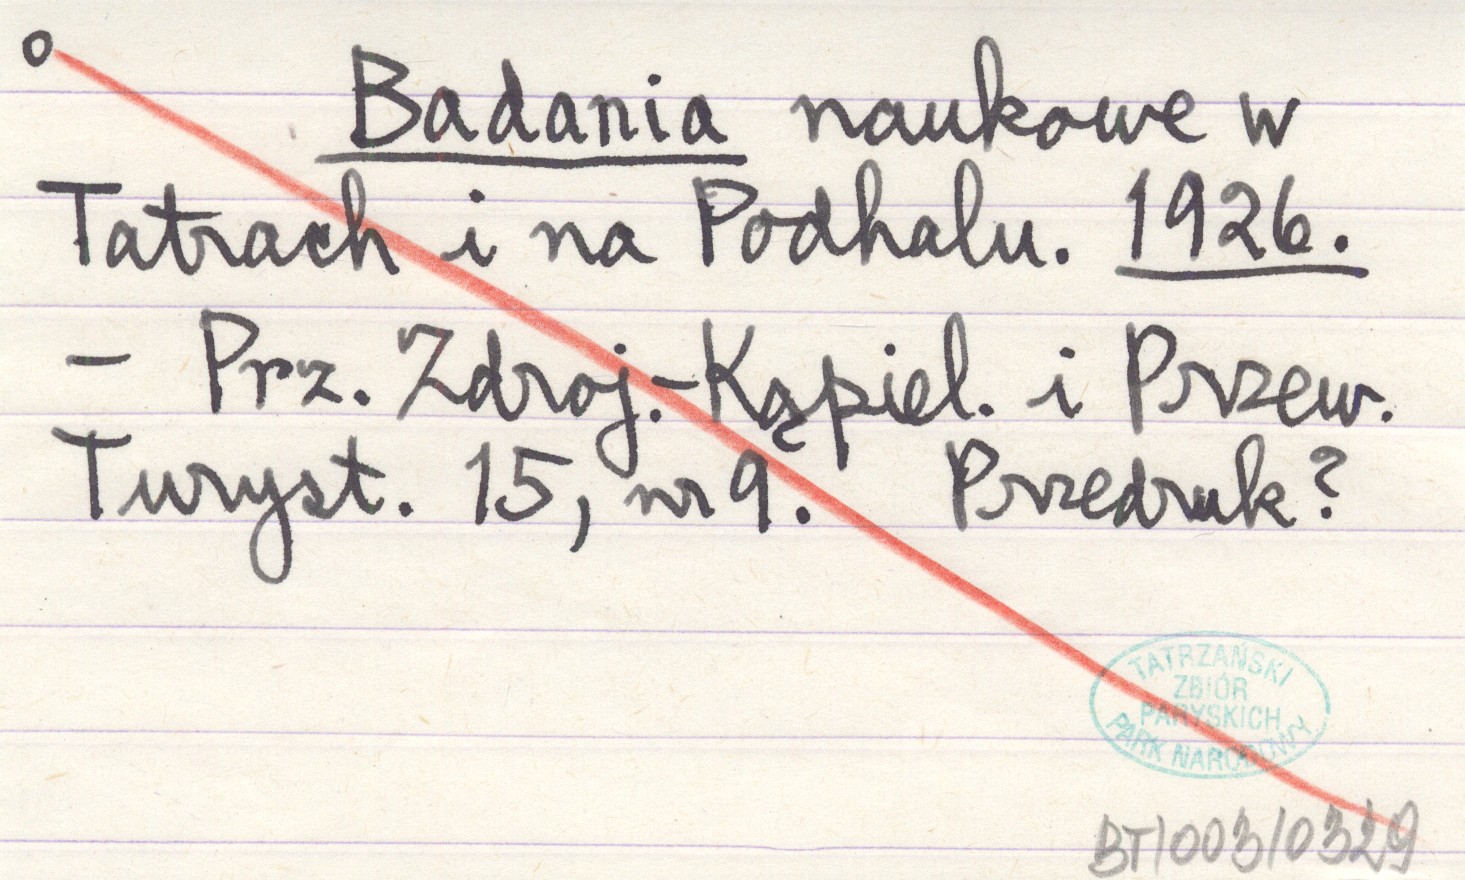 o
Badania naukowe w
Tatrach i na Podhalu. 1926.
– Prz. Zdroj.-Kąpiel. i Przew.
Turyst. 15, nr 9. Przedruk?
TATRZAŃSKI
ZBIÓR
PARYSKICH
PARK NARODOWY
BT/003/0329